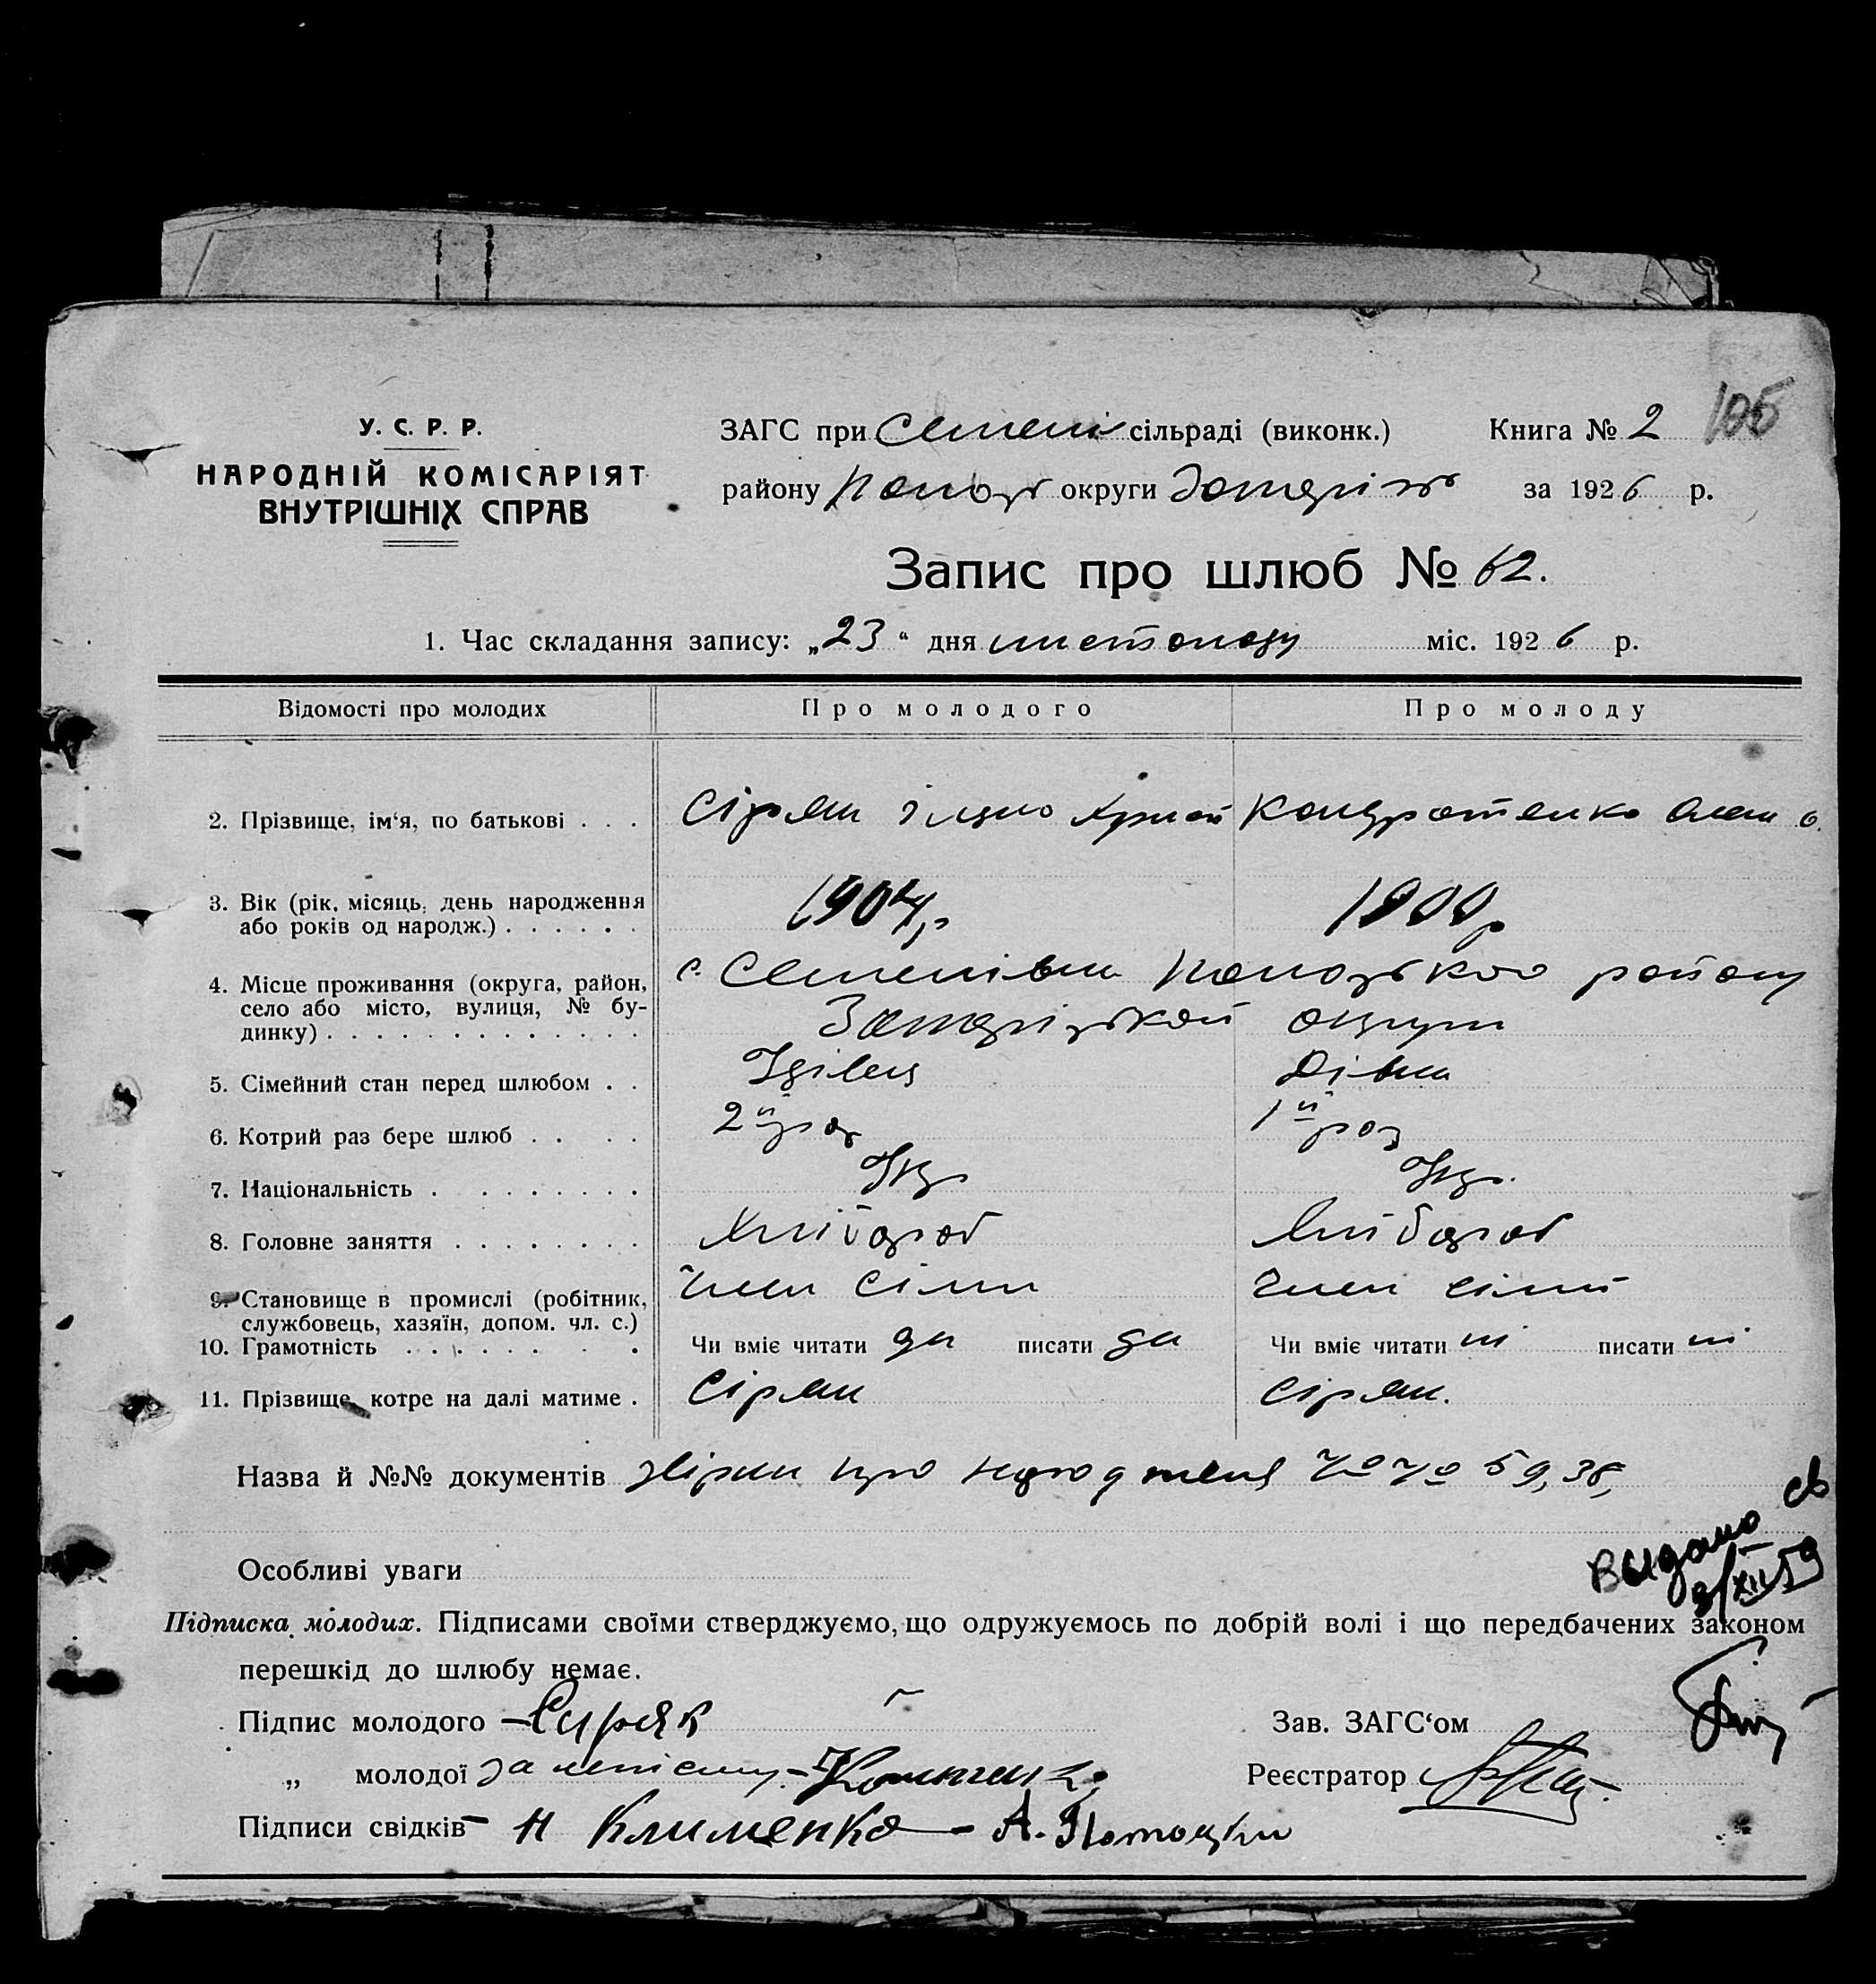 105
У. С. Р. Р.
НАРОДНІЙ КОМІСАРІЯТ
ВНУТРІШНІХ СПРАВ
ЗАГС при Семені сільраді (виконк.) Книга № 2
району округи за 1926 р.
Запис про шлюб № 62.
1. Час складання запису: „23“ дня листопаду міс. 1926 р.
Відомості про молодих Про молодого Про молоду
2. Прізвище, ім‘я, по батькові . . . Сіряк Кондратенко
3. Вік (рік, місяць, день народження
або років од народж.) . . . . . . 1904 р 1900 р
4. Місце проживання (округа, район,
село або місто, вулиця, № бу-
динку) . . . . . . . . . . . . .
с. Семенівка району
Запорізькой округи
5. Сімейний стан перед шлюбом . . Удівець Дівка
6. Котрий раз бере шлюб . . . . 2й раз 1й раз
7. Національність . . . . . . . . Укр Укр.
8. Головне заняття . . . . . . . . Хлібороб Хлібороб
9. Становище в промислі (робітник,
службовець, хазяїн, допом. чл. с.) Член сімї Член сімї
10. Грамотність . . . . . . . . Чи вміє читати да писати да Чи вміє читати ні писати ні
11. Прізвище, котре на далі матиме . Сіряк Сіряк.
Назва й №№ документів про №№ 59, 38,
Особливі уваги
Выдано св
9/XII 59
Підписка молодих. Підписами своїми стверджуємо, що одружуємось по добрій волі і що передбачених законом
перешкід до шлюбу немає.
Підпис молодого – Сиряк Зав. ЗАГС‘ом
„ молодої за Реєстратор
Підписи свідків – Н Клименко – А. Потоцки